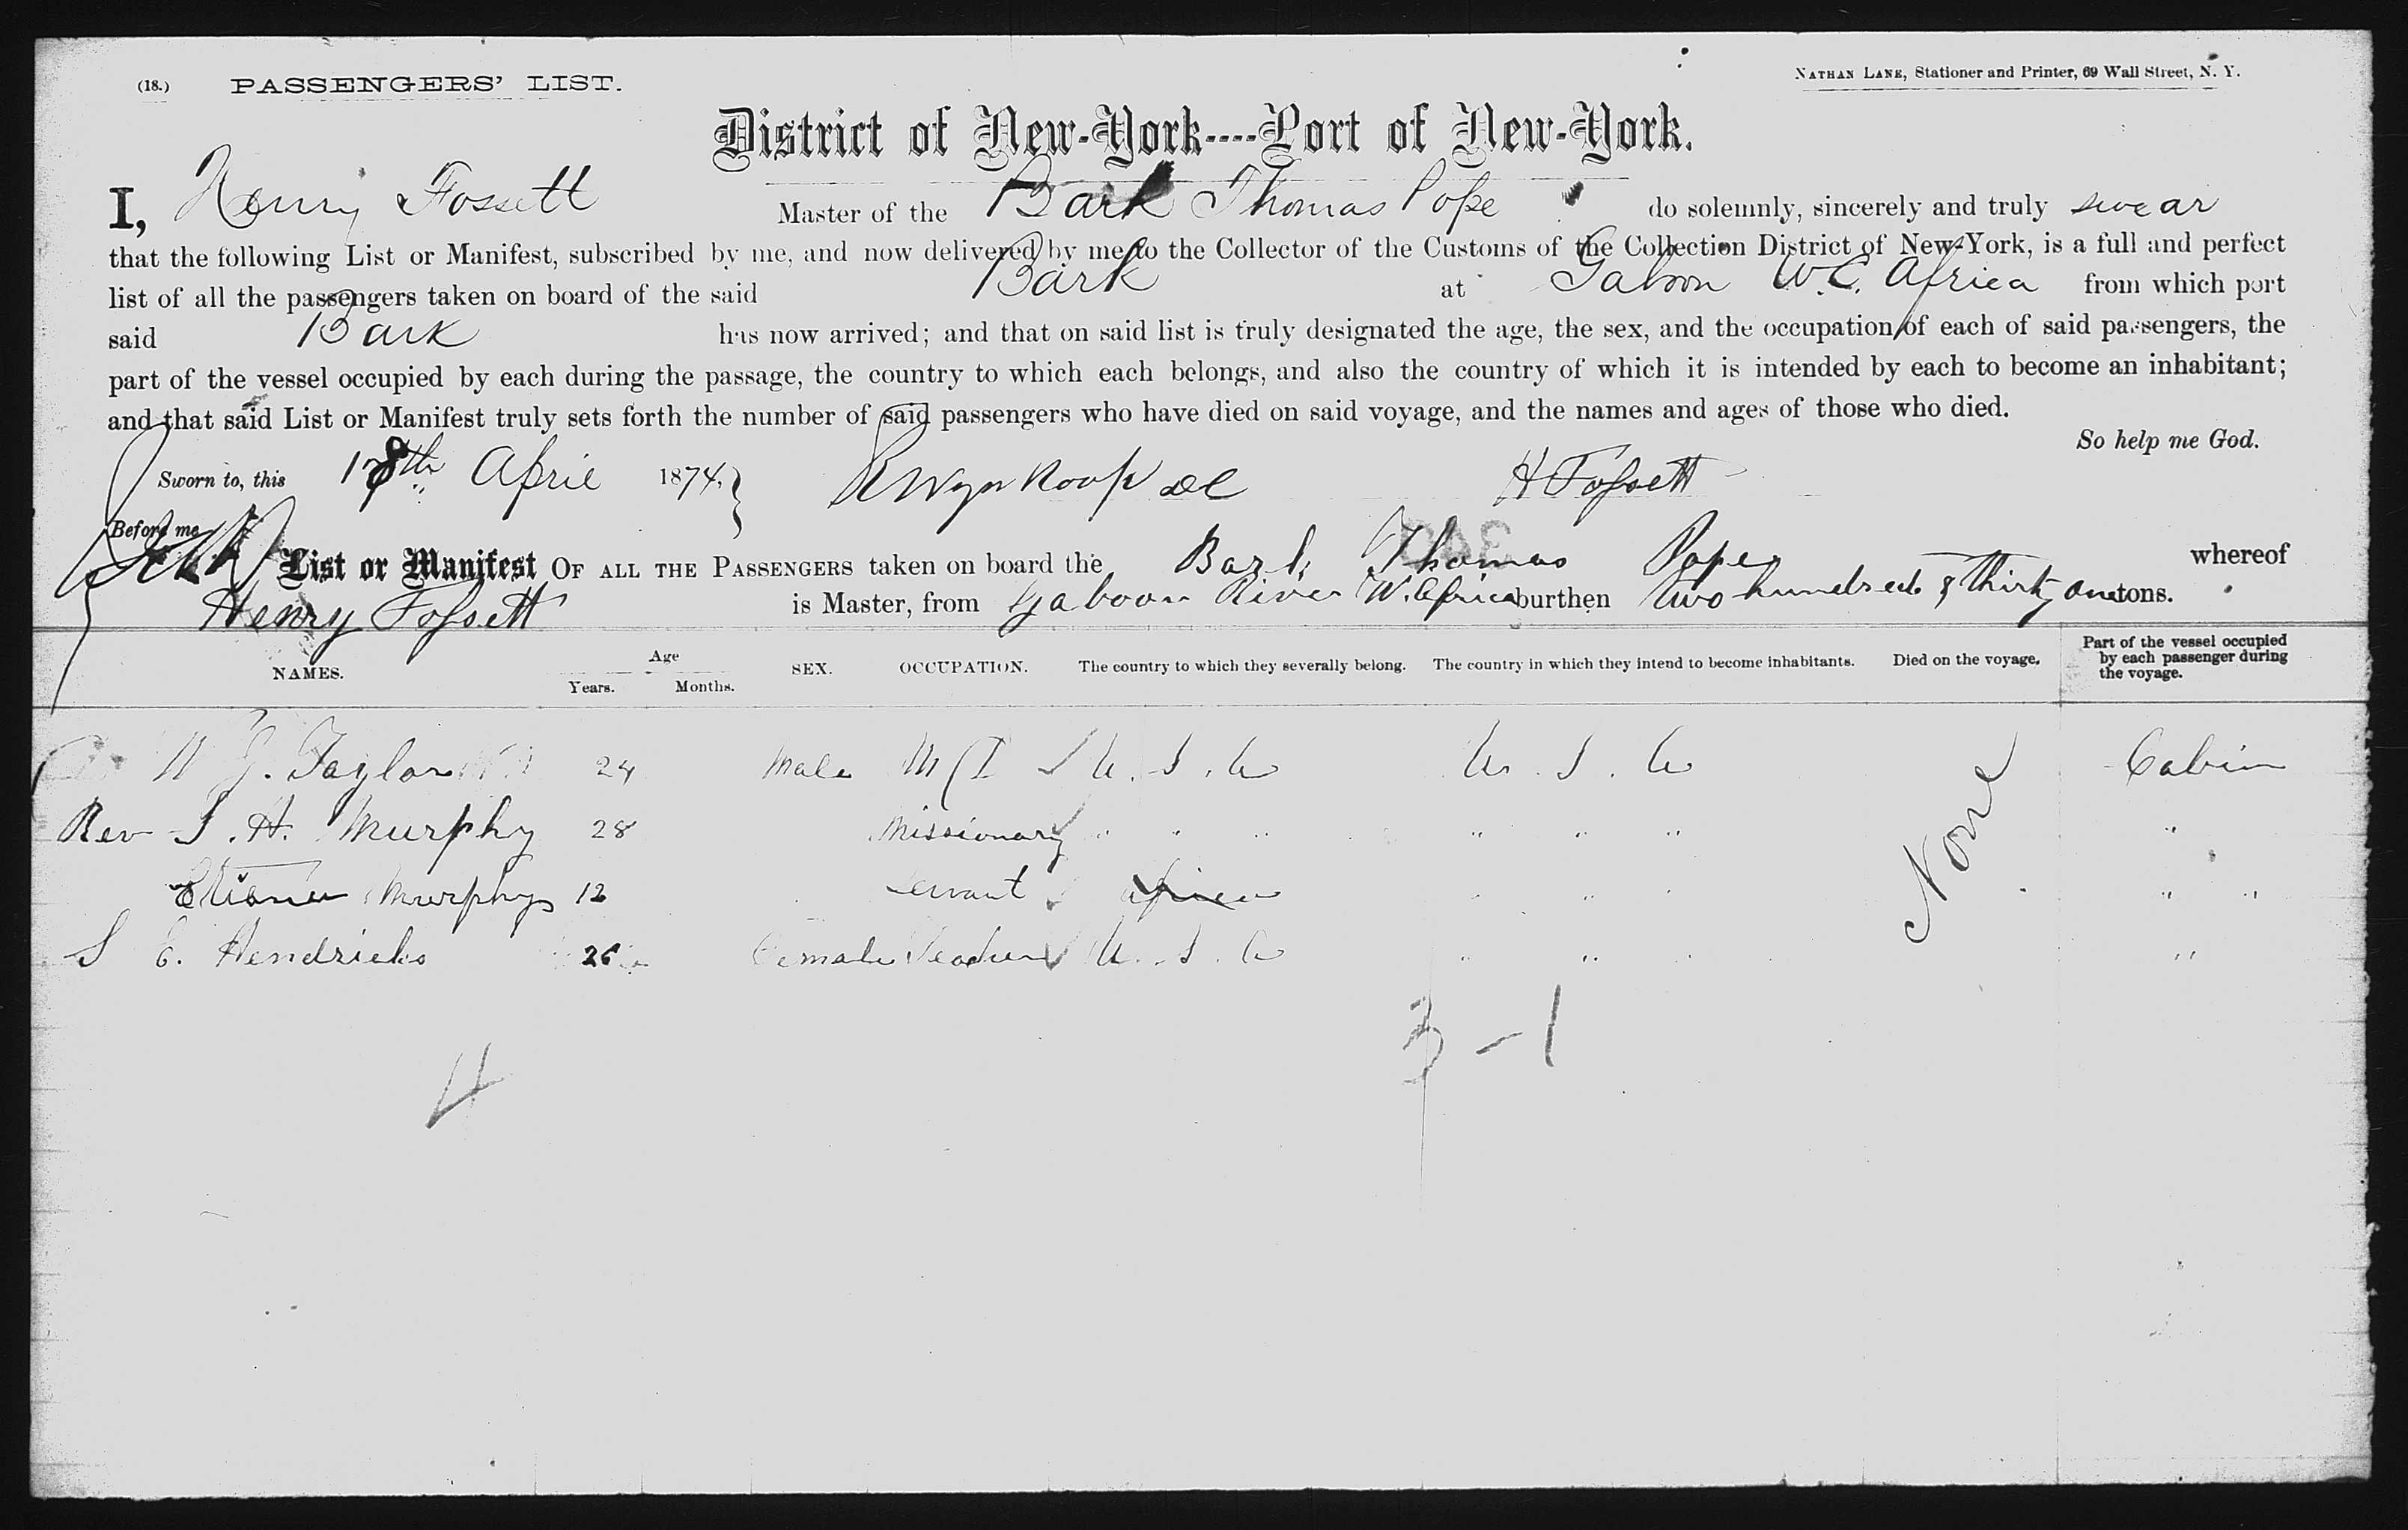 (18.) PASSENGERS' LIST.
NATHAN LANE, Stationer and Printer, 69 Wall Street, N. Y.
District of New-York----Port of New-York.
I, Henry Fossett Master of the Bark Thomas Pope do solemnly, sincerely and truly swear
that the following List or Manifest, subscribed by me, and now delivered by me to the Collector of the Customs of the Collection District of New-York, is a full and perfect
list of all the passengers taken on board of the said Bark at Gaboon W.C. Africa from which port
said Bark has now arrived; and that on said list is truly designated the age, the sex, and the occupation of each of said passengers, the
part of the vessel occupied by each during the passage, the country to which each belongs, and also the country of which it is intended by each to become an inhabitant;
and that said List or Manifest truly sets forth the number of said passengers who have died on said voyage, and the names and ages of those who died.
So help me God.
Sworn to, this 18th April 1874, H Fossett
Before me
List or Manifest OF ALL THE PASSENGERS taken on board the Bark Thomas Pope whereof
Henry Fossett is Master, from Gaboon River W. Africa burthen two hundred & thirty one tons.
NAMES. Age Years. Months. SEX. OCCUPATION. The country to which they severally belong. The country in which they intend to become inhabitants. Died on the voyage. Part of the vessel occupied by each passenger during the voyage.
Taylor 24 Male U. S. A U. S. A None Cabin
Rev S. H. Murphy 28 Missionary " " " " " " "
Murphy 12 Servant Africa " " " " "
S E. Hendricks 26 Female Teacher U. S. A " " " "
3 - 1
4